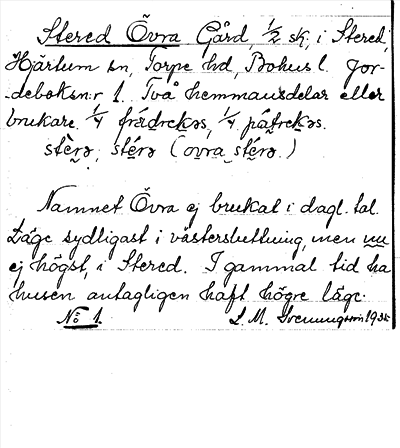 Stered Övra Gård, 1/2 sk, i Stered,
Hjärtum sn, Torpe hd, Bohusl. Jor-
deboksn:r 1. Två hemmansdelar eller
brukare. 1/4 frédrekəs, 1/4 pátrekəs.
stèrə, stérə (ovra stérə.)
Namnet Övra ej brukat i dagl. tal.
Läge sydligast i västersluttning, men nu
ej högst, i Stered. I gammal tid ha
husen antagligen haft högre läge.
No 1. L. M. Svenungsson 1935